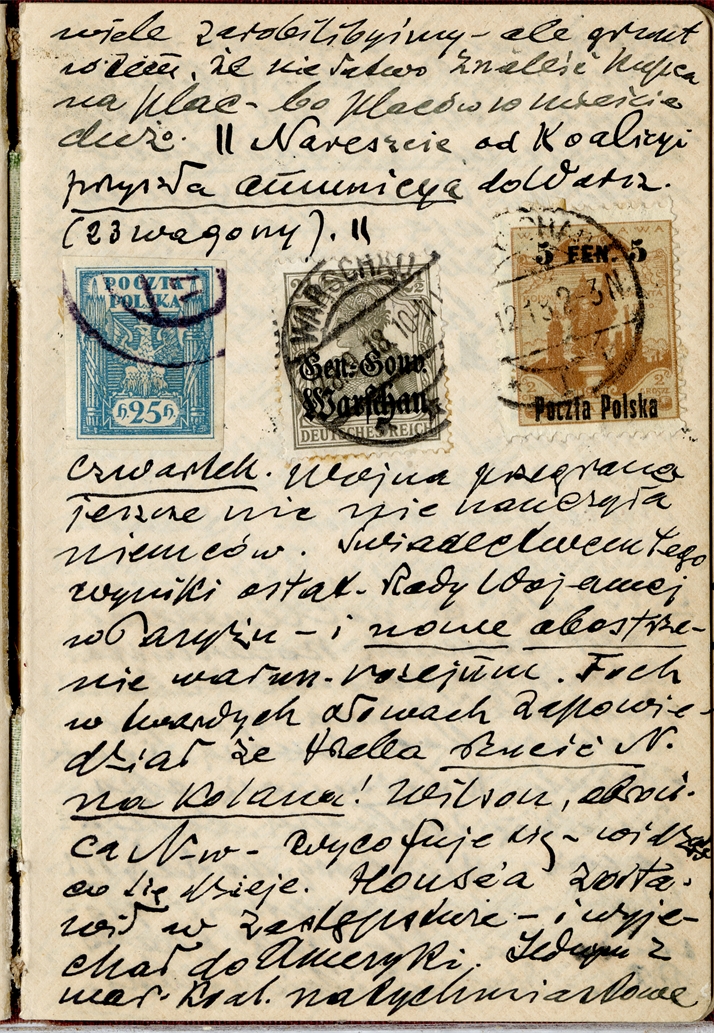 wiele zarobilibyśmy – ale grunt
w tem, że nie łatwo znaleść kupca
na plac – bo placów w mieście
dużo. || Nareszcie od Koalicyi
przyszła amunicya do Warsz.
(23 wagony). ||
POCZTA
POLSKA
h. 25 h.
WARSCHAU
Gen.-Gouv.
Warschau
DEUTSCHES REICH
5 FEN. 5
Poczta Polska
czwartek. Wojna przegrana
jeszcze nic nie nauczyła
niemców. Świadectwem tego
wyniki ostat. Rady Wojennej
w Paryżu – i nowe obostrze-
nie warun. rozejmu. Foch
w twardych słowach zapowie-
dział że trzeba rzucić N.
na kolana! Wilson, obroń-
ca N-w – wycofuje się – widząc
co się dzieje. House'a zosta-
wił w zastępstwie – i wyje-
chał do Ameryki. Jednym z
war. Koal. natychmiastowe